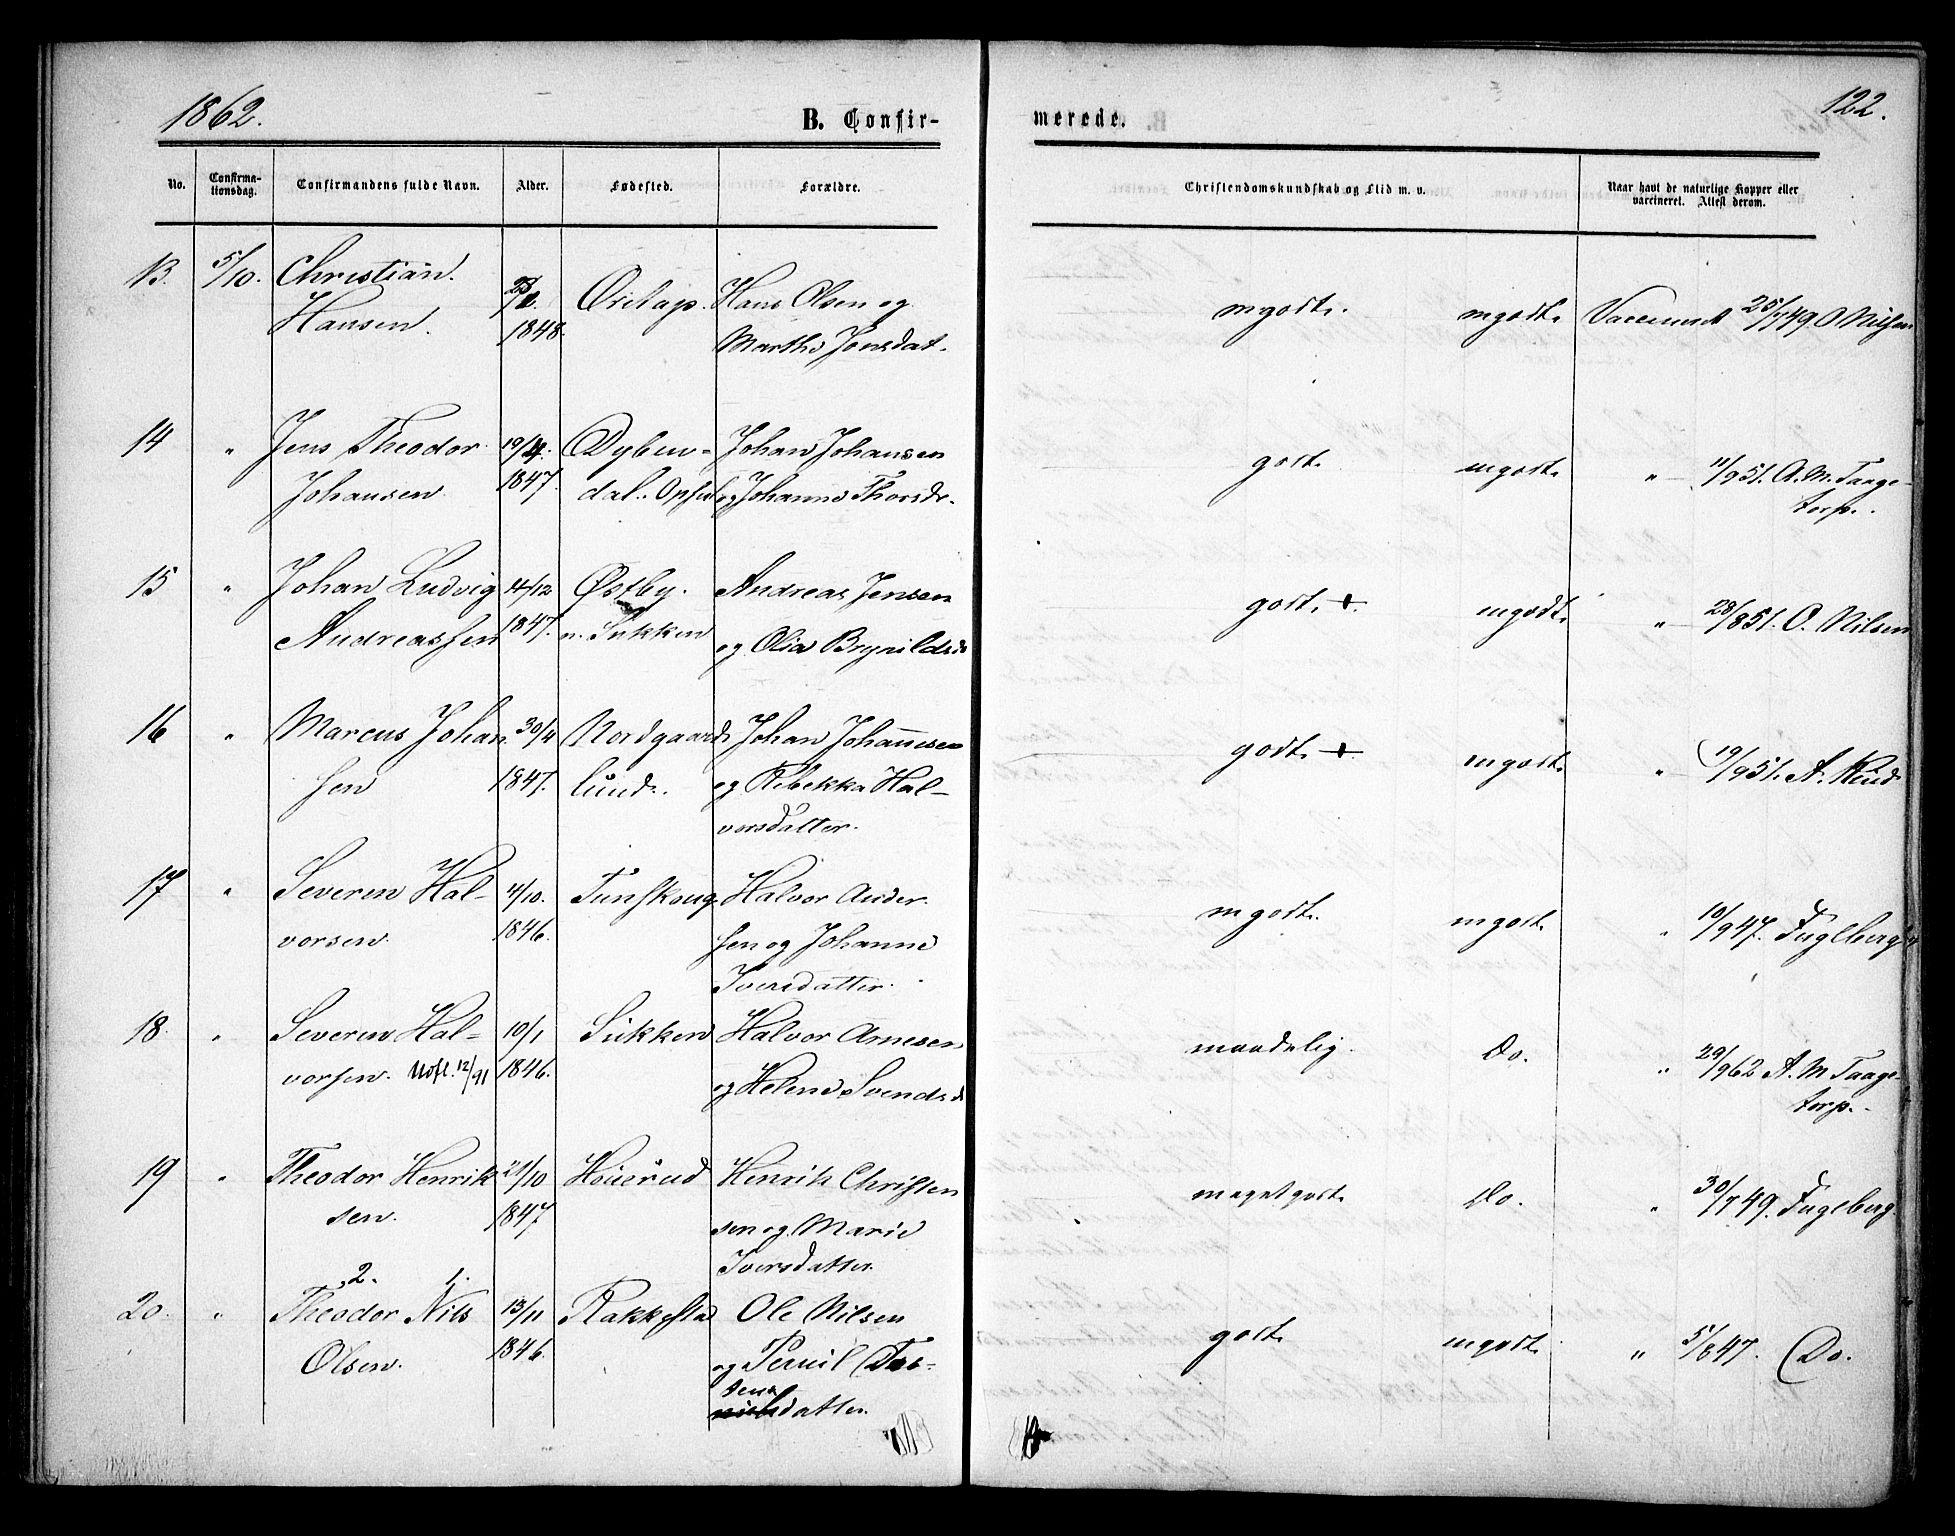 1862.
B. Confir-
merede.
122.
No.
Confirma-
tionsdag.
Confirmandens fulde Navn.
Alder.
Fødested.
Forældre.
Christendomskundskab og Flid m. v.
Naar havt de naturlige Kopper eller
vaccineret. Attest derom.
13. 5/10. Christian Hans Olsen og mgodt. mgodt. Vaccineret 25/7 49 O Nilsen
Hansen. 1848. Marthe Jensdat.
14 " Jens Theodor 19/4. Dyben- Johan Johansen godt. mgodt. " 11/9 51. A. M. Taage-
Johansen 1847. dal. og Johanne Thorsdr. torp.
15 " Johan Ludvig 4/12 Østby. Andreas Jensen godt. mgodt. " 28/8 51. O. Nilsen
Andreassen 1847. u. Sikken og Olia Brynildsd
16 " Marcus Johan 30/4 Nordgaard Johan Johannesen godt. mgodt. " 19/9 51. A. Ruud
sen 1847. lund. og Rebekka Hal-
vorsdatter.
17 " Severen Hal- 4/10. Tunskoug Halvor Ander mgodt. mgodt. " 10/9 47. Fuglberg
vorsen. 1846. sen og Johanne
Iversdatter.
18 " Severen Hal- 10/1 Sikken Halvor Arnesen maadelig. Do. " 29/9 62 A. M Taage-
vorsen. Udfl. 12/91 1846. og Helene Svendsd torp.
19 " Theodor Henrik 21/10 Henrik Christen meget godt. Do. " 30/7 49. Fuglberg.
sen. 1847 sen og Marie
Iversdatter.
2. 1.
20. " Theodor Nils 13/11 Rakkestad Ole Nilsen godt. mgodt. " 5/8 47. Do.
Olsen. 1846. og Pernil Tor-
stens
datter.